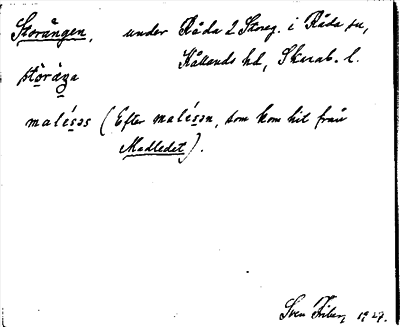 Storängen, under Råda 2 Storeg. i Råda sn,
Kållands hd, Skarab. l.
stóräŋa
malésəs (Efter malésən, som kom hit från
Madledet).
Sven 1927.